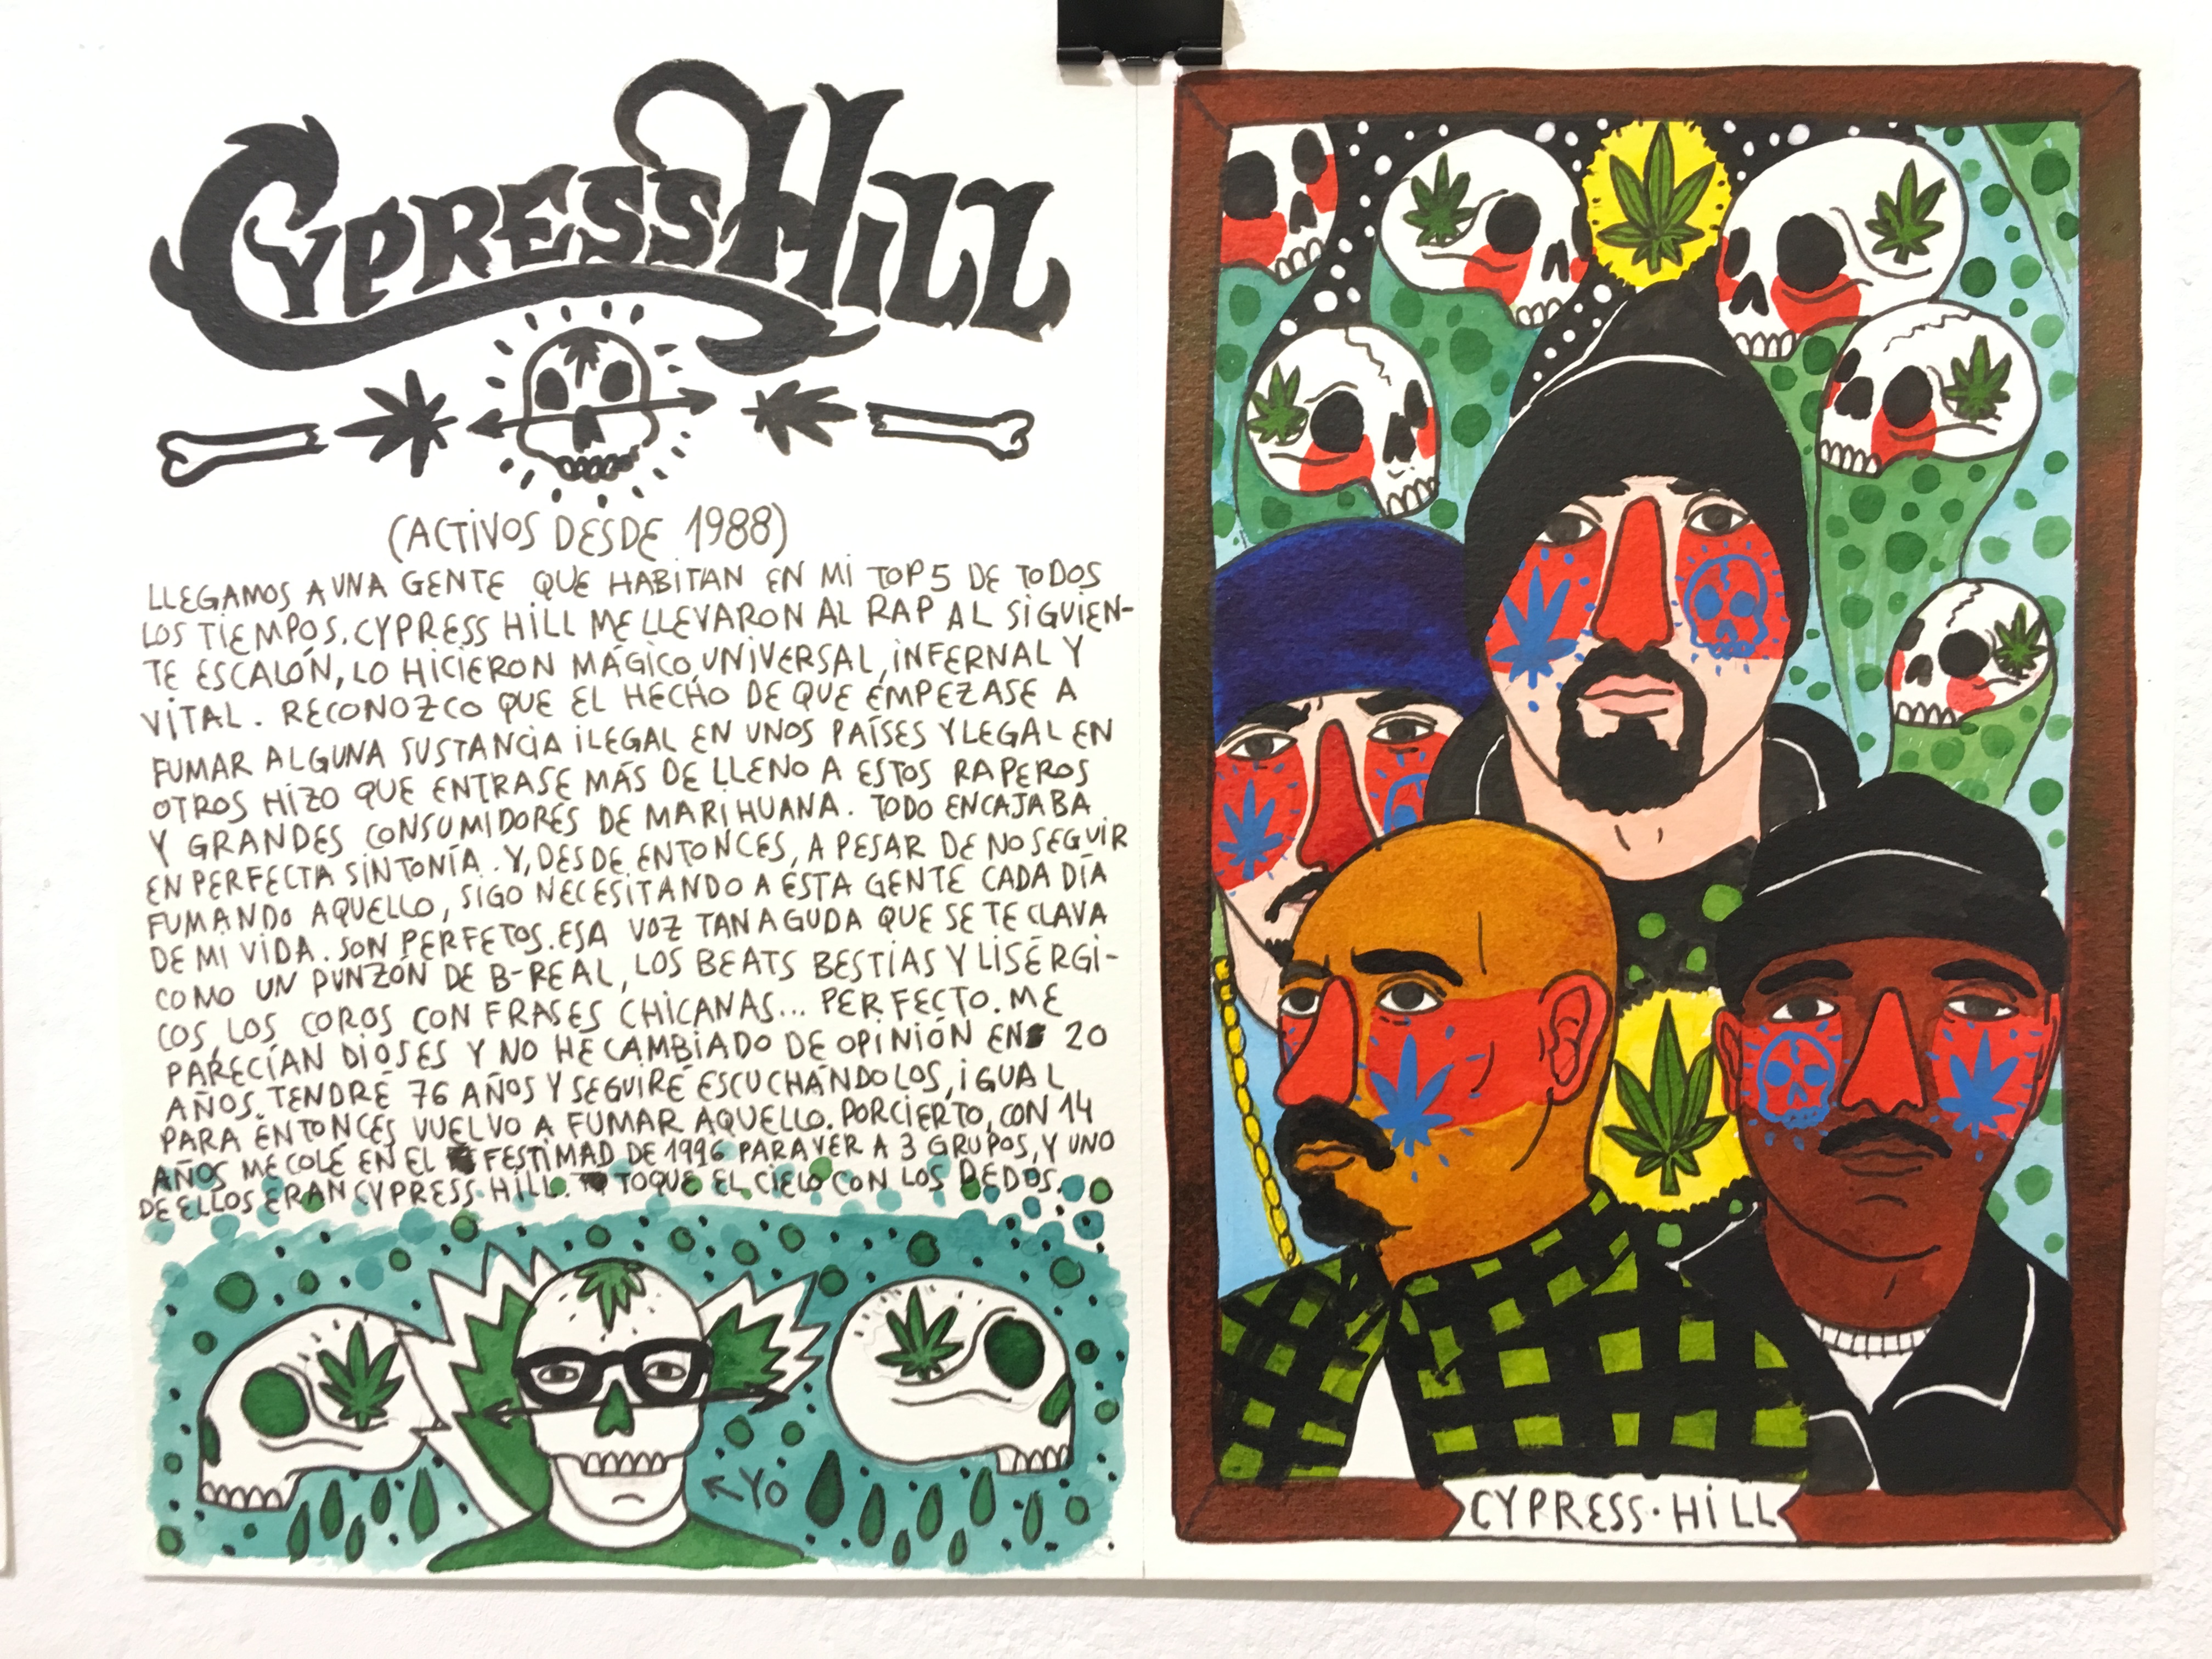 CYPRESS HILL
(ACTIVOS DESDE 1988)
LLEGAMOS A UNA GENTE QUE HABITAN EN MI TOP 5 DE TODOS
LOS TIEMPOS. CYPRESS HILL ME LLEVARON AL RAP AL SIGUIEN-
TE ESCALÓN, LO HICIERON MÁGICO, UNIVERSAL, INFERNAL Y
VITAL. RECONOZCO QUE EL HECHO DE QUE EMPEZASE A
FUMAR ALGUNA SUSTANCIA ILEGAL EN UNOS PAÍSES Y LEGAL EN
OTROS HIZO QUE ENTRASE MÁS DE LLENO A ESTOS RAPEROS
Y GRANDES CONSUMIDORES DE MARIHUANA. TODO ENCAJABA
EN PERFECTA SINTONÍA. Y, DESDE ENTONCES, A PESAR DE NO SEGUIR
FUMANDO AQUELLO, SIGO NECESITANDO A ESTA GENTE CADA DÍA
DE MI VIDA. SON PERFETOS. ESA VOZ TAN AGUDA QUE SE TE CLAVA
COMO UN PUNZÓN DE B-REAL, LOS BEATS BESTIAS Y LISÉRGI-
COS, LOS COROS CON FRASES CHICANAS... PERFECTO. ME
PARECÍAN DIOSES Y NO HE CAMBIADO DE OPINIÓN EN 20
AÑOS. TENDRÉ 76 AÑOS Y SEGUIRÉ ESCUCHÁNDOLOS, IGUAL
PARA ENTONCES VUELVO A FUMAR AQUELLO. POR CIERTO, CON 14
AÑOS ME COLÉ EN EL FESTIMAD DE 1996 PARA VER A 3 GRUPOS, Y UNO
DE ELLOS ERAN CYPRESS HILL. TOQUE EL CIELO CON LOS DEDOS.
←YO
CYPRESS·HILL